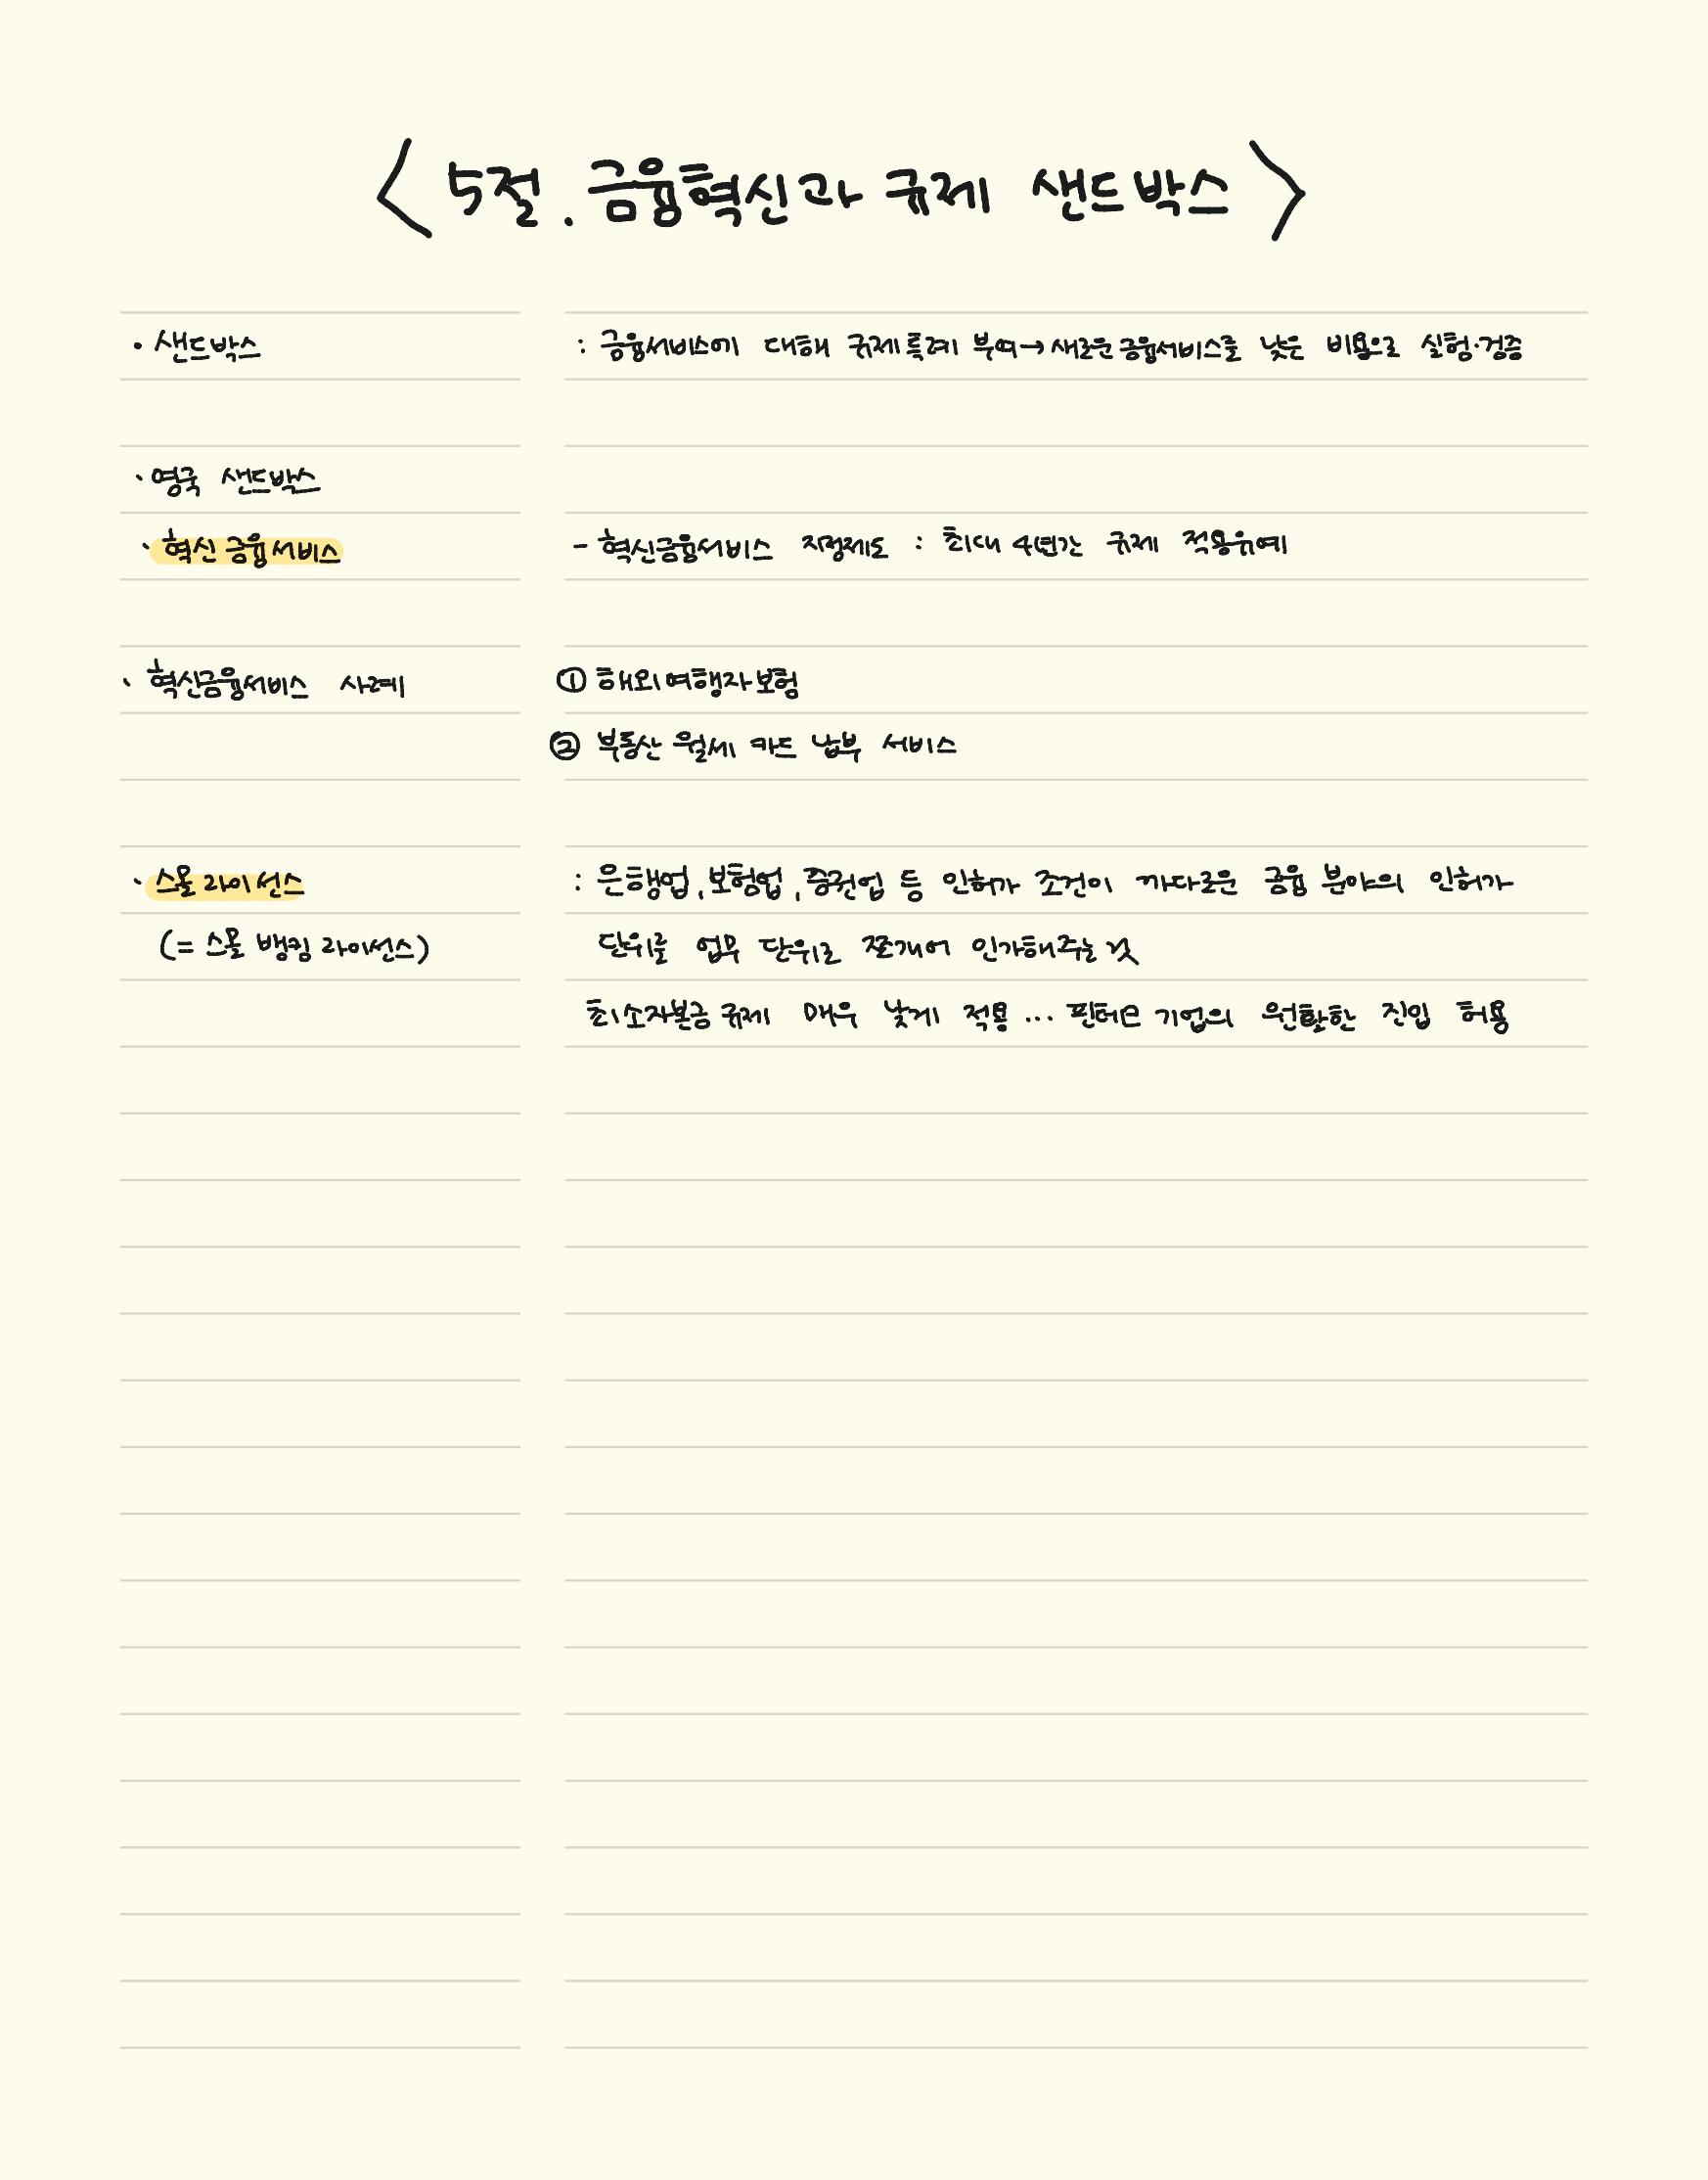 <5절. 금융혁신과 규제 샌드박스>
· 샌드박스 : 금융서비스에 대해 규제특례 부여→새로운금융서비스를 낮은 비용으로 실험·검증
· 영국 샌드박스
· 혁신 금융서비스 - 혁신금융서비스 지정제도 : 최대 4년간 규제 적용유예
· 혁신금융서비스 사례 ① 해외여행자보험
② 부동산 월세 카드 납부 서비스
· 스몰라이선스 : 은행업, 보험업, 증권업 등 인허가 조건이 까다로운 금융 분야의 인허가
(= 스몰 뱅킹 라이선스) 단위를 업무 단위로 쪼개어 인가해주는 것
최소자본금규제 매우 낮게 적용 … 핀테크 기업의 원활한 진입 허용